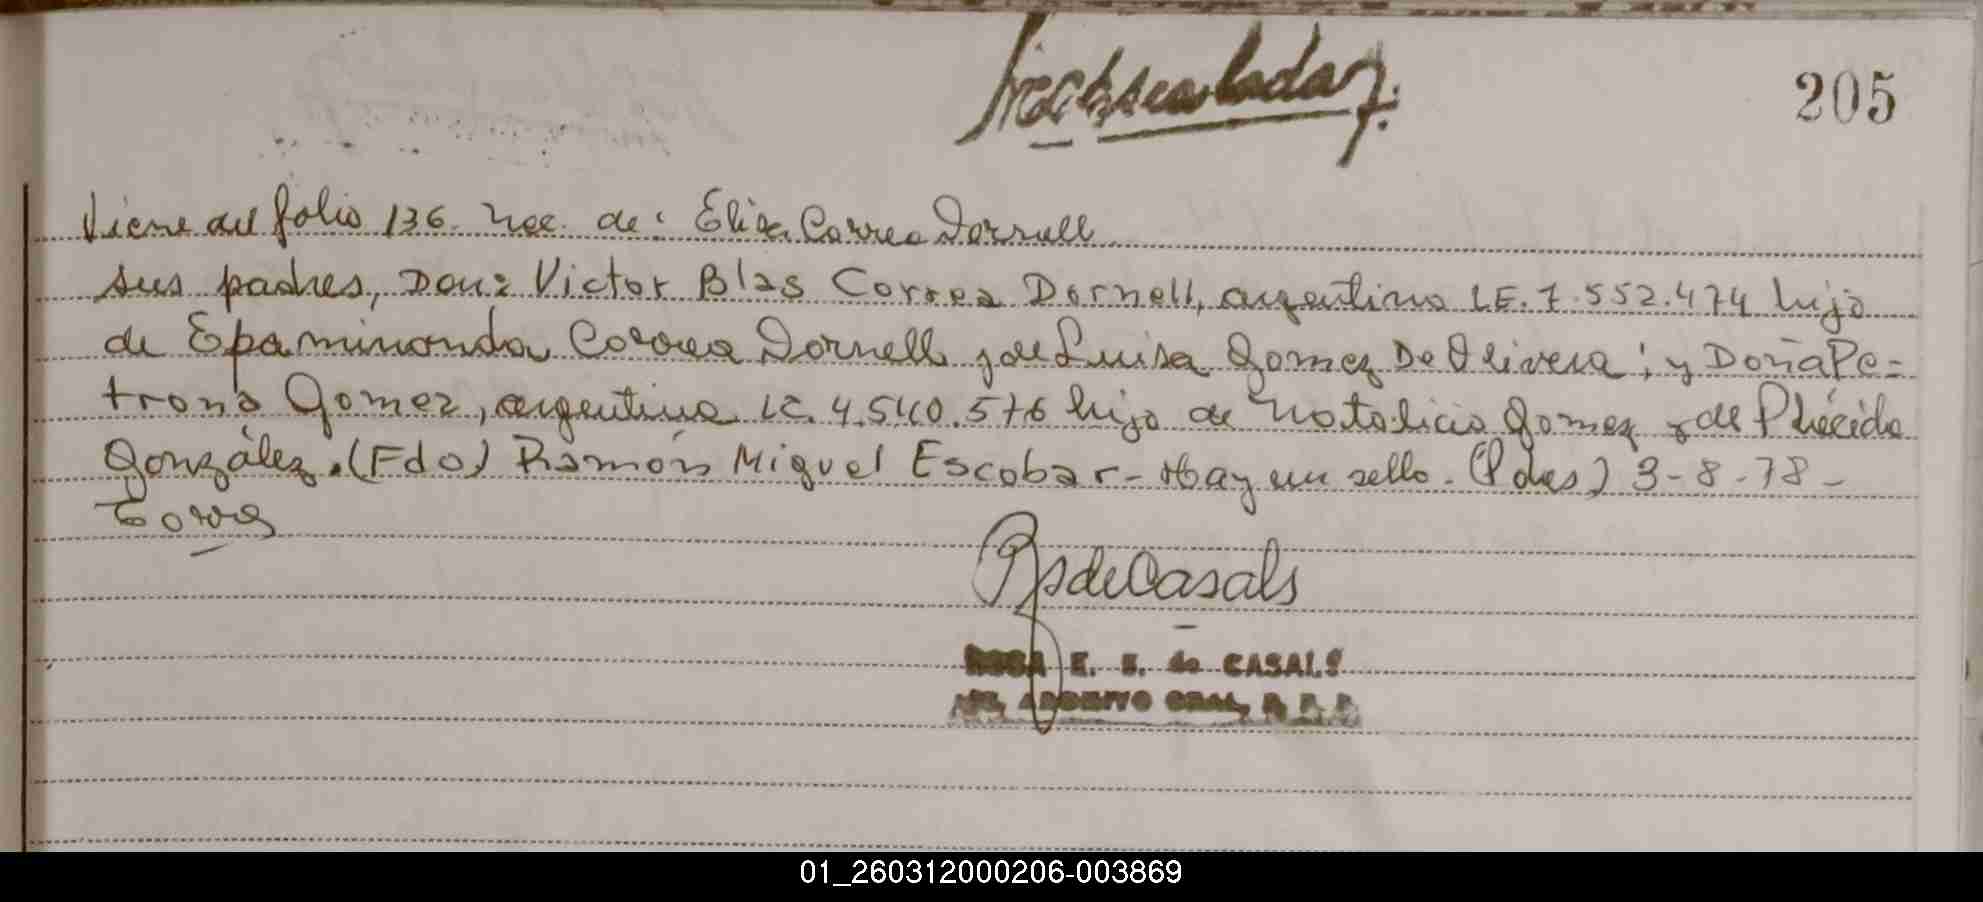 205
Viene del folio 136. Nac. de: Elisa Correa Dornell
sus padres, Don: Victor Blas Correa Dornell, argentino L.E. 7.552.474 hijo
de Epaminonda Correa Dornell y de Luisa Gomez De Olivera; y Doña Pe=
trona Gomez, argentina L.C. 4.540.576 hija de Natalicio Gomez y de Plácida
González. (Fdo) Ramón Miguel Escobar - Hay un sello. (Pdas) 3-8-78-
de Casals
E. de CASALS
01_260312000206-003869